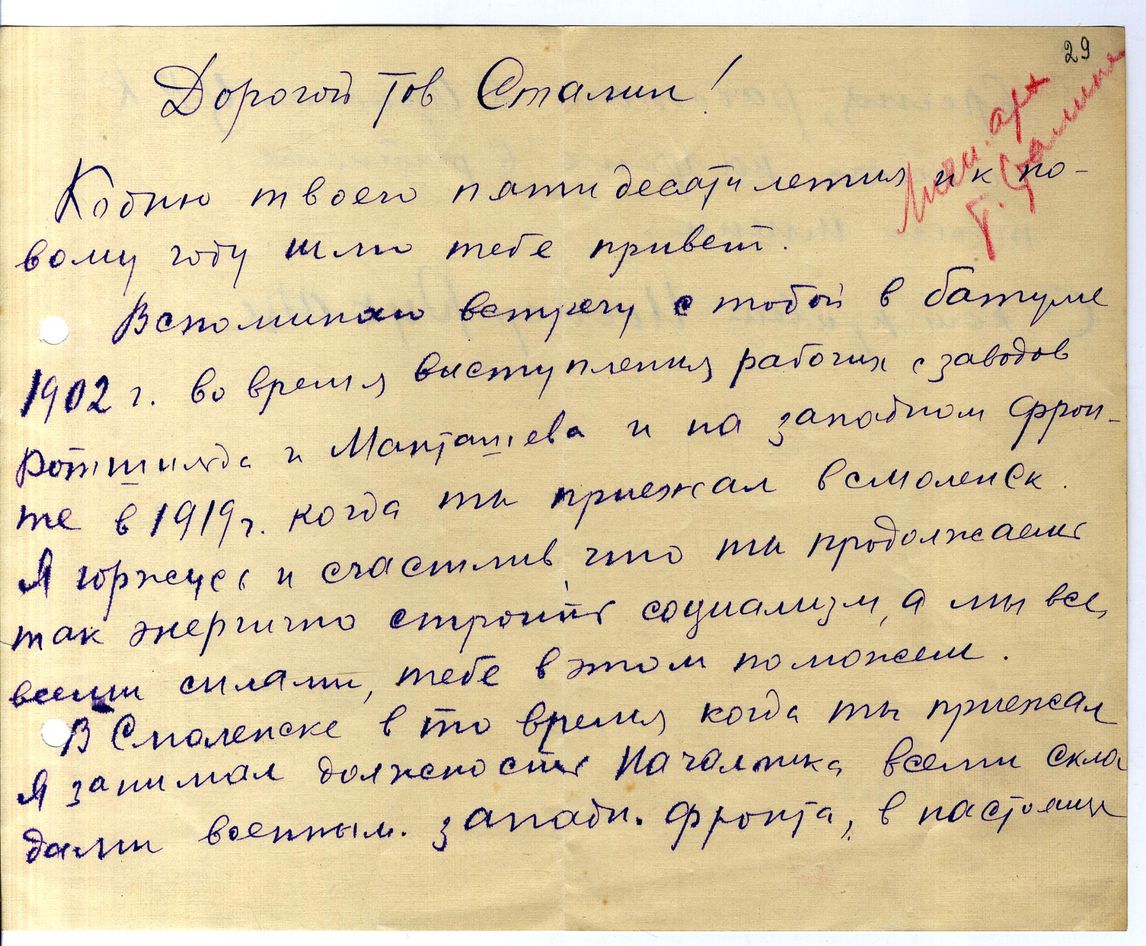 29
Личн. арх
т. Сталина
Дорогой тов Сталин!
К дню твоего пятидесятилетия и к но-
вому году шлю тебе привет.
Вспоминаю встречу с тобой в батуме
1902 г. во время выступления рабочих с заводов
Ротшильда и Манташева и на западном фрон-
те в 1919 г. когда ты приежал в смоленск.
Я горжусь и счастлив, что ты продолжаешь
так энергично строить социализм, а мы все,
всеми силами, тебе в этом поможем.
В Смоленске в то время когда ты приежал
Я занимал должность Начальника всеми скла
дами военным. западн. фронта, в настоящ